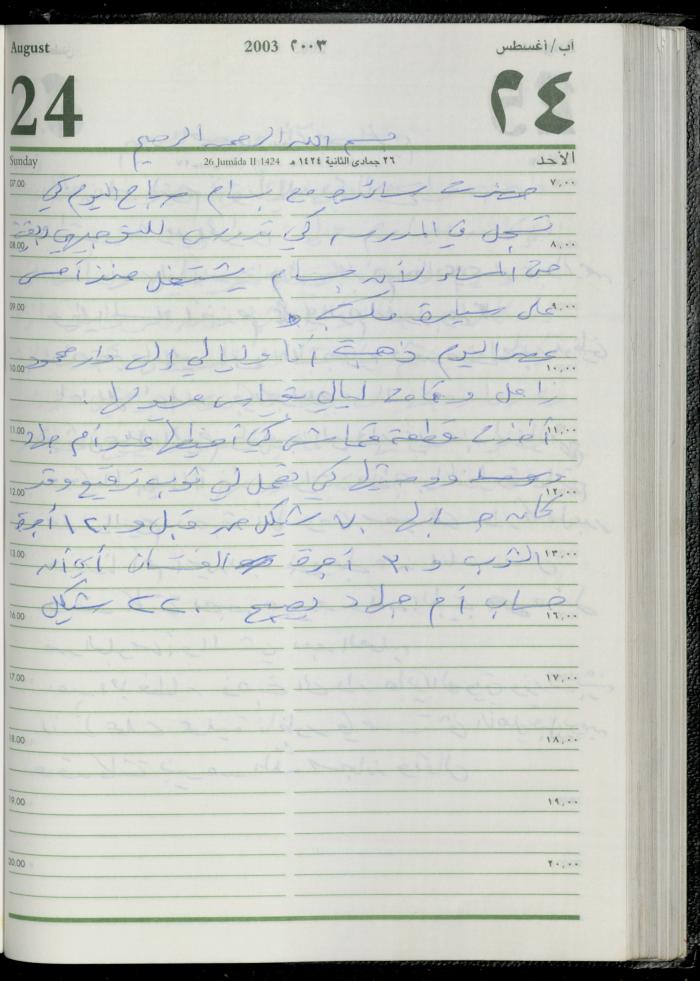 August 2003 ٢٠٠٣ آب/أغسطس
24 ٢٤
بسم الله الرحمن الرحيم
Sunday 26 Jumáda II 1424 ٢٦ جمادى الثانية ١٤٢٤ هـ الأحد
07.00 مع بسام صباح اليوم كي ٧,٠٠
تسجل في المدرسة كي تدرس للتوجيهي
08.00 ٨,٠٠
حتى المساء لأن بسام يشتغل منذ أمس
09.00 على سيارة ٩,٠٠
عصر اليوم ذهبت أنا وليالي إلى دار محمود
10.00 ١٠,٠٠
زاحل وقامت ليالي بقياس مريولها.
11.00 أخذت قطعة قماش كي أخيطها عند أم جهاد ١١,٠٠
كي تعمل لي ثوب ترقيع وقد
12.00 ١٢,٠٠
كان حسابها ٧٠ شيكل من قبل و ١٢٠ أجرة
13.00 الثوب و ٣٠ أجرة الفستان أي أن ١٣,٠٠
حساب أم جهاد يصبح ٢٢٠ شيكل
16.00 ١٦,٠٠
17.00 ١٧,٠٠
18.00 ١٨,٠٠
19.00 ١٩,٠٠
20.00 ٢٠,٠٠